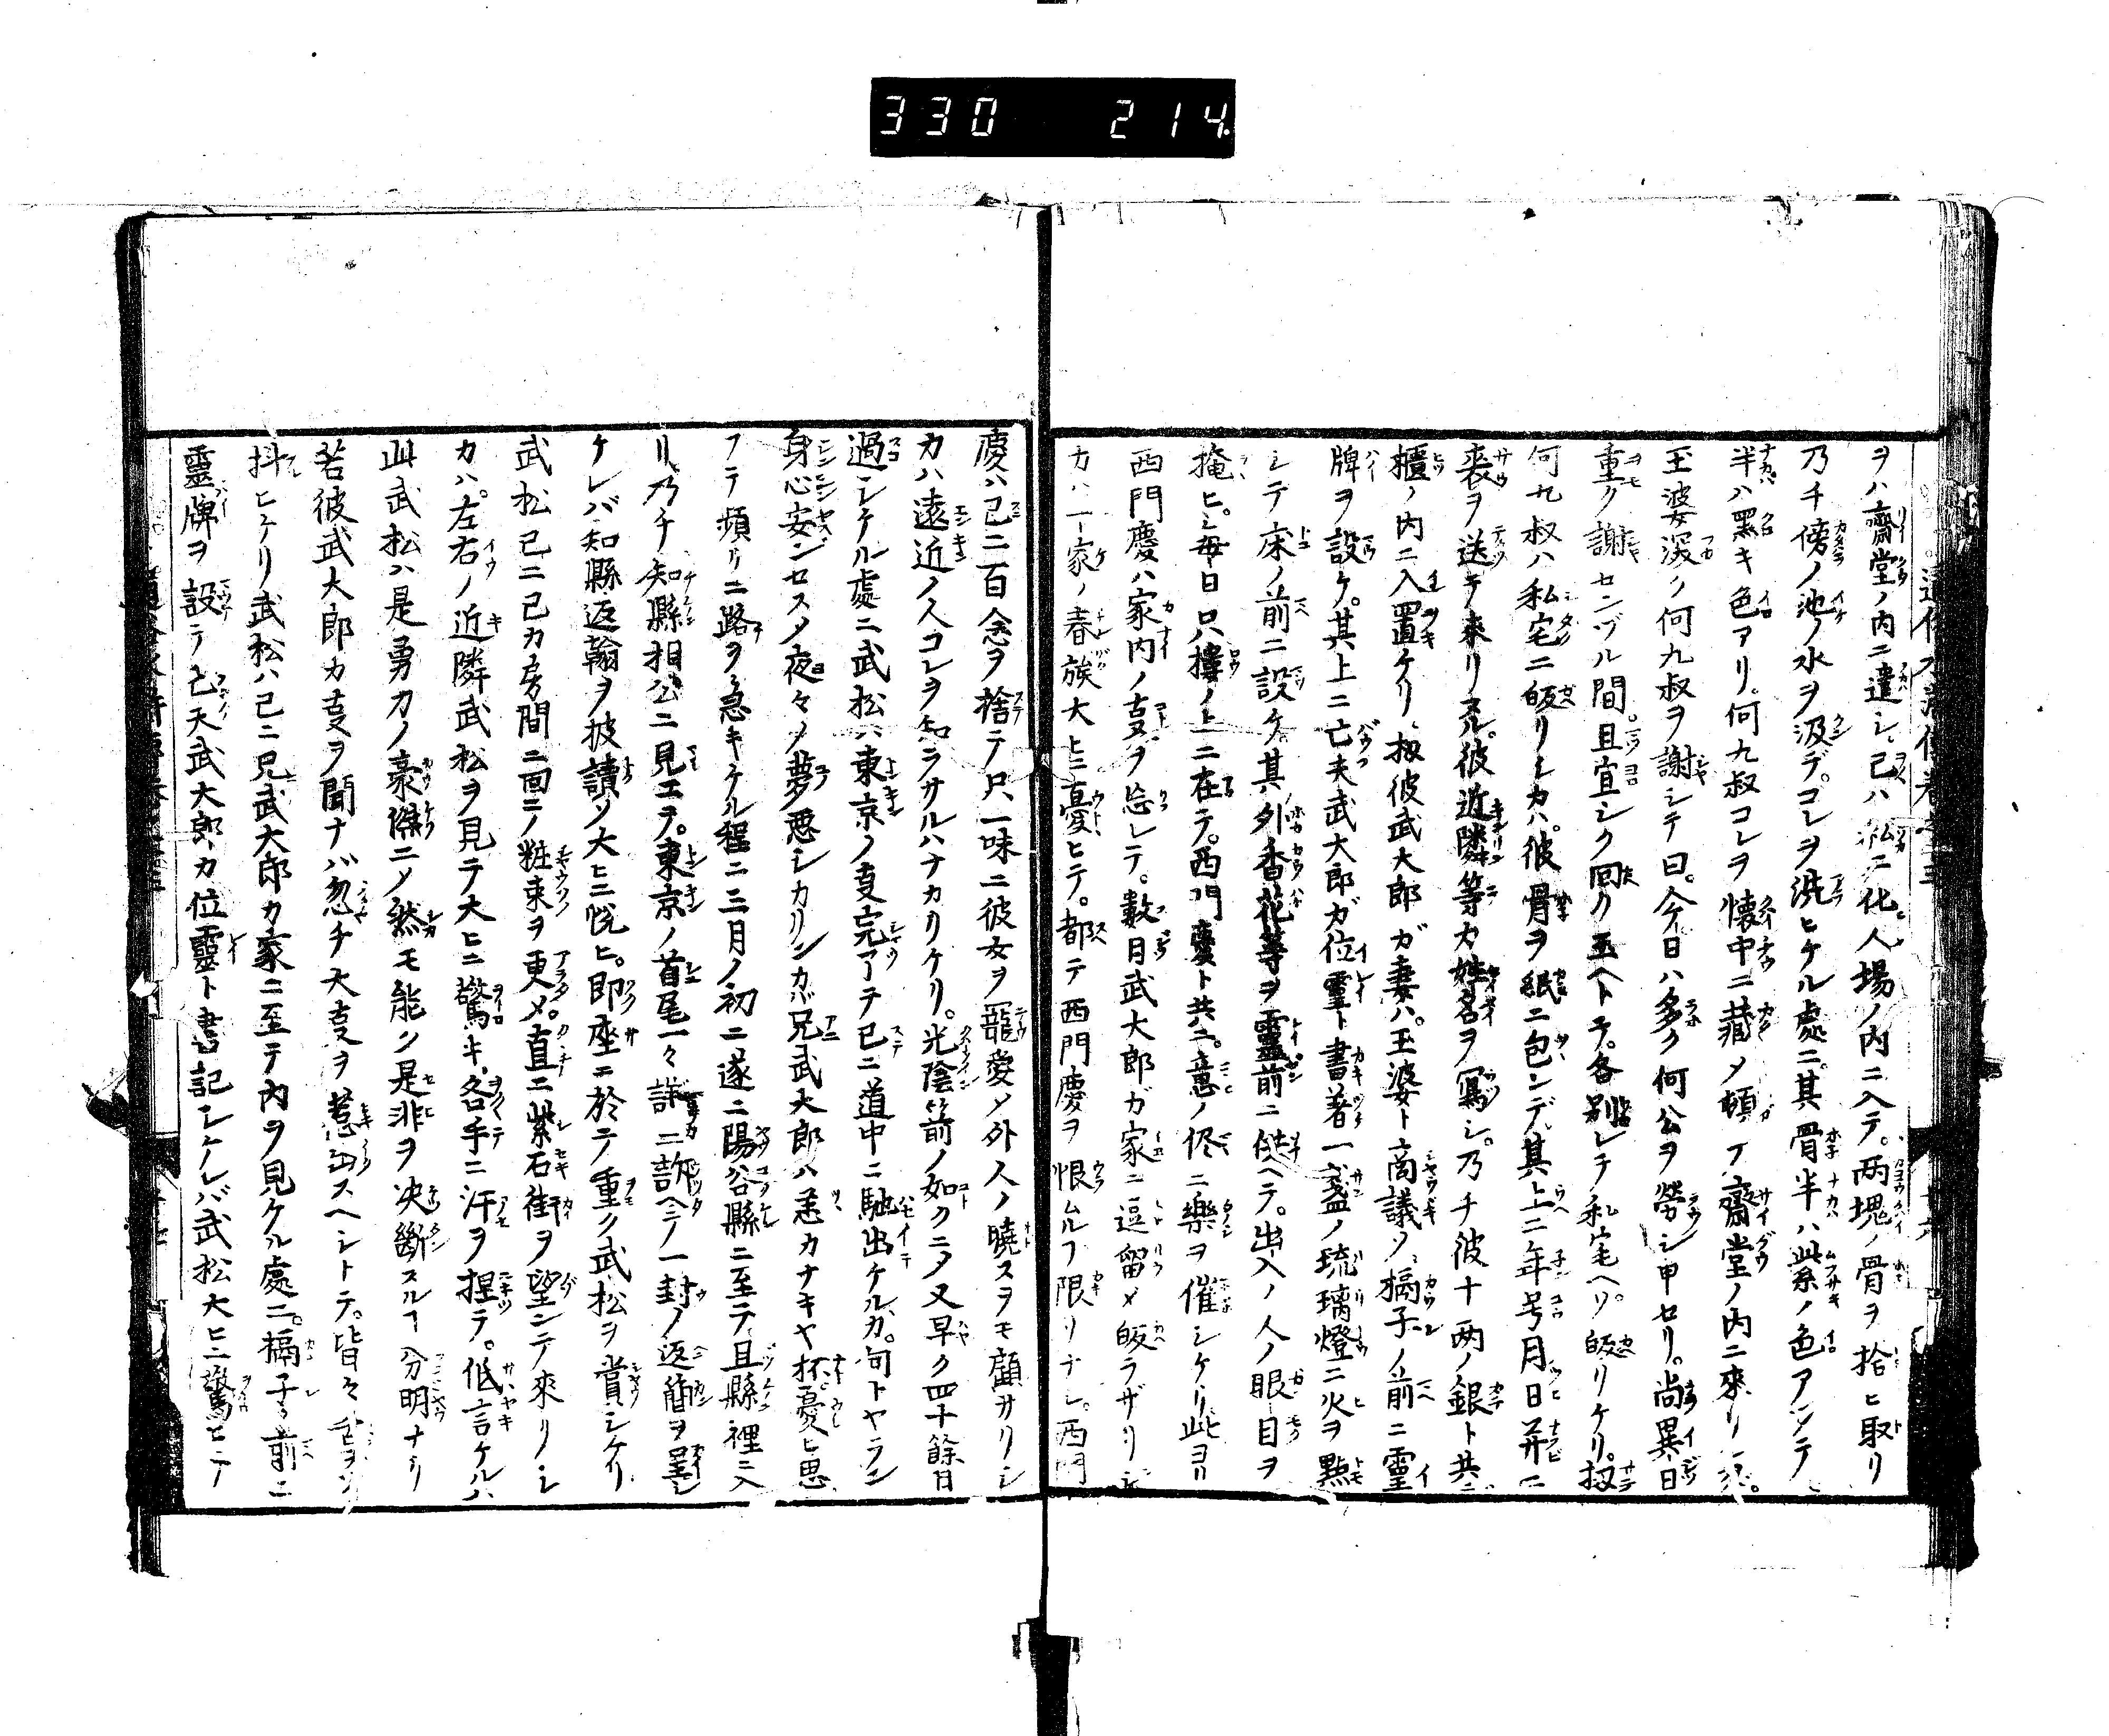 330 214.
ヲハ齋堂ノ内ニ遣シ己ハ私ニ化人場ノ内ニ入テ。两塊ノ骨ヲ拾ヒ取リ
乃チ傍ノ池ノ水ヲ汲デ。コレヲ洗ヒケル處ニ。其骨半ハ紫ノ色アツテ
半ハ黑キ色アリ。何九叔コレヲ懐中ニ藏メ頓テ齋堂ノ内ニ來リ
王婆深ク何九叔ヲ謝シテ曰。今日ハ多ク何公ヲ勞シ申セリ。尚異日
重ク謝センヅル間。且宜シク回リ玉ヘトテ。各別レテ私宅ヘゾ皈リケリ。扨
何九叔ハ私宅ニ皈リシカハ。彼骨ヲ紙ニ包ンデ。其上ニ年号月日并ニ
喪ヲ送テ来リヌル。彼近隣等カ姓名ヲ寫シ。乃チ彼十两ノ銀ト共ニ
櫃ノ内ニ入置ケリ。扨彼武大郎ガ妻ハ。王婆ト商議ソ。槅子ノ前ニ靈
牌ヲ設ケ。其上ニ亡夫武大郎ガ位靈ト書著一盞ノ琉璃燈ニ火ヲ點
シテ床ノ前ニ設ケ其外香花等ヲ靈前ニ供ヘテ。出入ノ人ノ眼目ヲ
掩ヒ。毎日只樓ノ上ニ在テ。西門慶ト共ニ。意ノ侭ニ樂ヲ催シケリ此ヨリ
西門慶ハ家内ノ叓ヲ忘レテ。數月武大郎ガ家ニ逗留メ皈ラザリシ
カハ一家ノ眷族大ニ憂ヒテ。都テ西門慶ヲ恨ムルヿ限リナシ。西門
慶ハ已ニ百念ヲ捨テ只一味ニ彼女ヲ寵愛メ外人ノ曉スヲモ顧サリシ
カハ遠近ノ人コレヲ知ラサルハナカリケリ。光陰箭ノ如クニメ又早ク四十餘日
過シケル處ニ武松ハ東京ノ叓完アテ已ニ道中ニ馳出ケルカ。何トヤラン
身心安ンセスメ夜々ノ夢悪シカリシカバ兄武大郎ハ恙カナキヤ抔憂ヒ思
フテ頻リニ路ヲ急キケル程ニ三月ノ初ニ遂ニ陽谷縣ニ至テ且縣裡ニ入
リ。乃チ知縣相公ニ見エテ。東京ノ首尾一々詳ニ訴ヘテ一封ノ返簡ヲ呈シ
ケレバ知縣返翰ヲ披讀ソ大ヒニ悦ヒ。即座ニ於テ重ク武松ヲ賞シケリ
武松已ニ己カ房間ニ回ニノ粧束ヲ更メ。直ニ紫石街ヲ望ンテ來リシ
カハ。左右ノ近隣武松ヲ見テ大ヒニ驚キ。各手ニ汗ヲ捏テ。低言ケルハ
此武松ハ是勇力ノ豪傑ニソ然モ能ク是非ヲ决斷スルヿ分明ナリ
若彼武大郎カ叓ヲ聞ナバ忽チ大叓ヲ惹出スヘシトテ。皆々
抖ヒケリ武松ハ已ニ兄武大郎カ家ニ至テ内ヲ見ケル處ニ。槅子ノ前ニ
靈牌ヲ設テ亡夫武大郎カ位靈ト書記シケレバ武松大ヒニ驚ヒテ